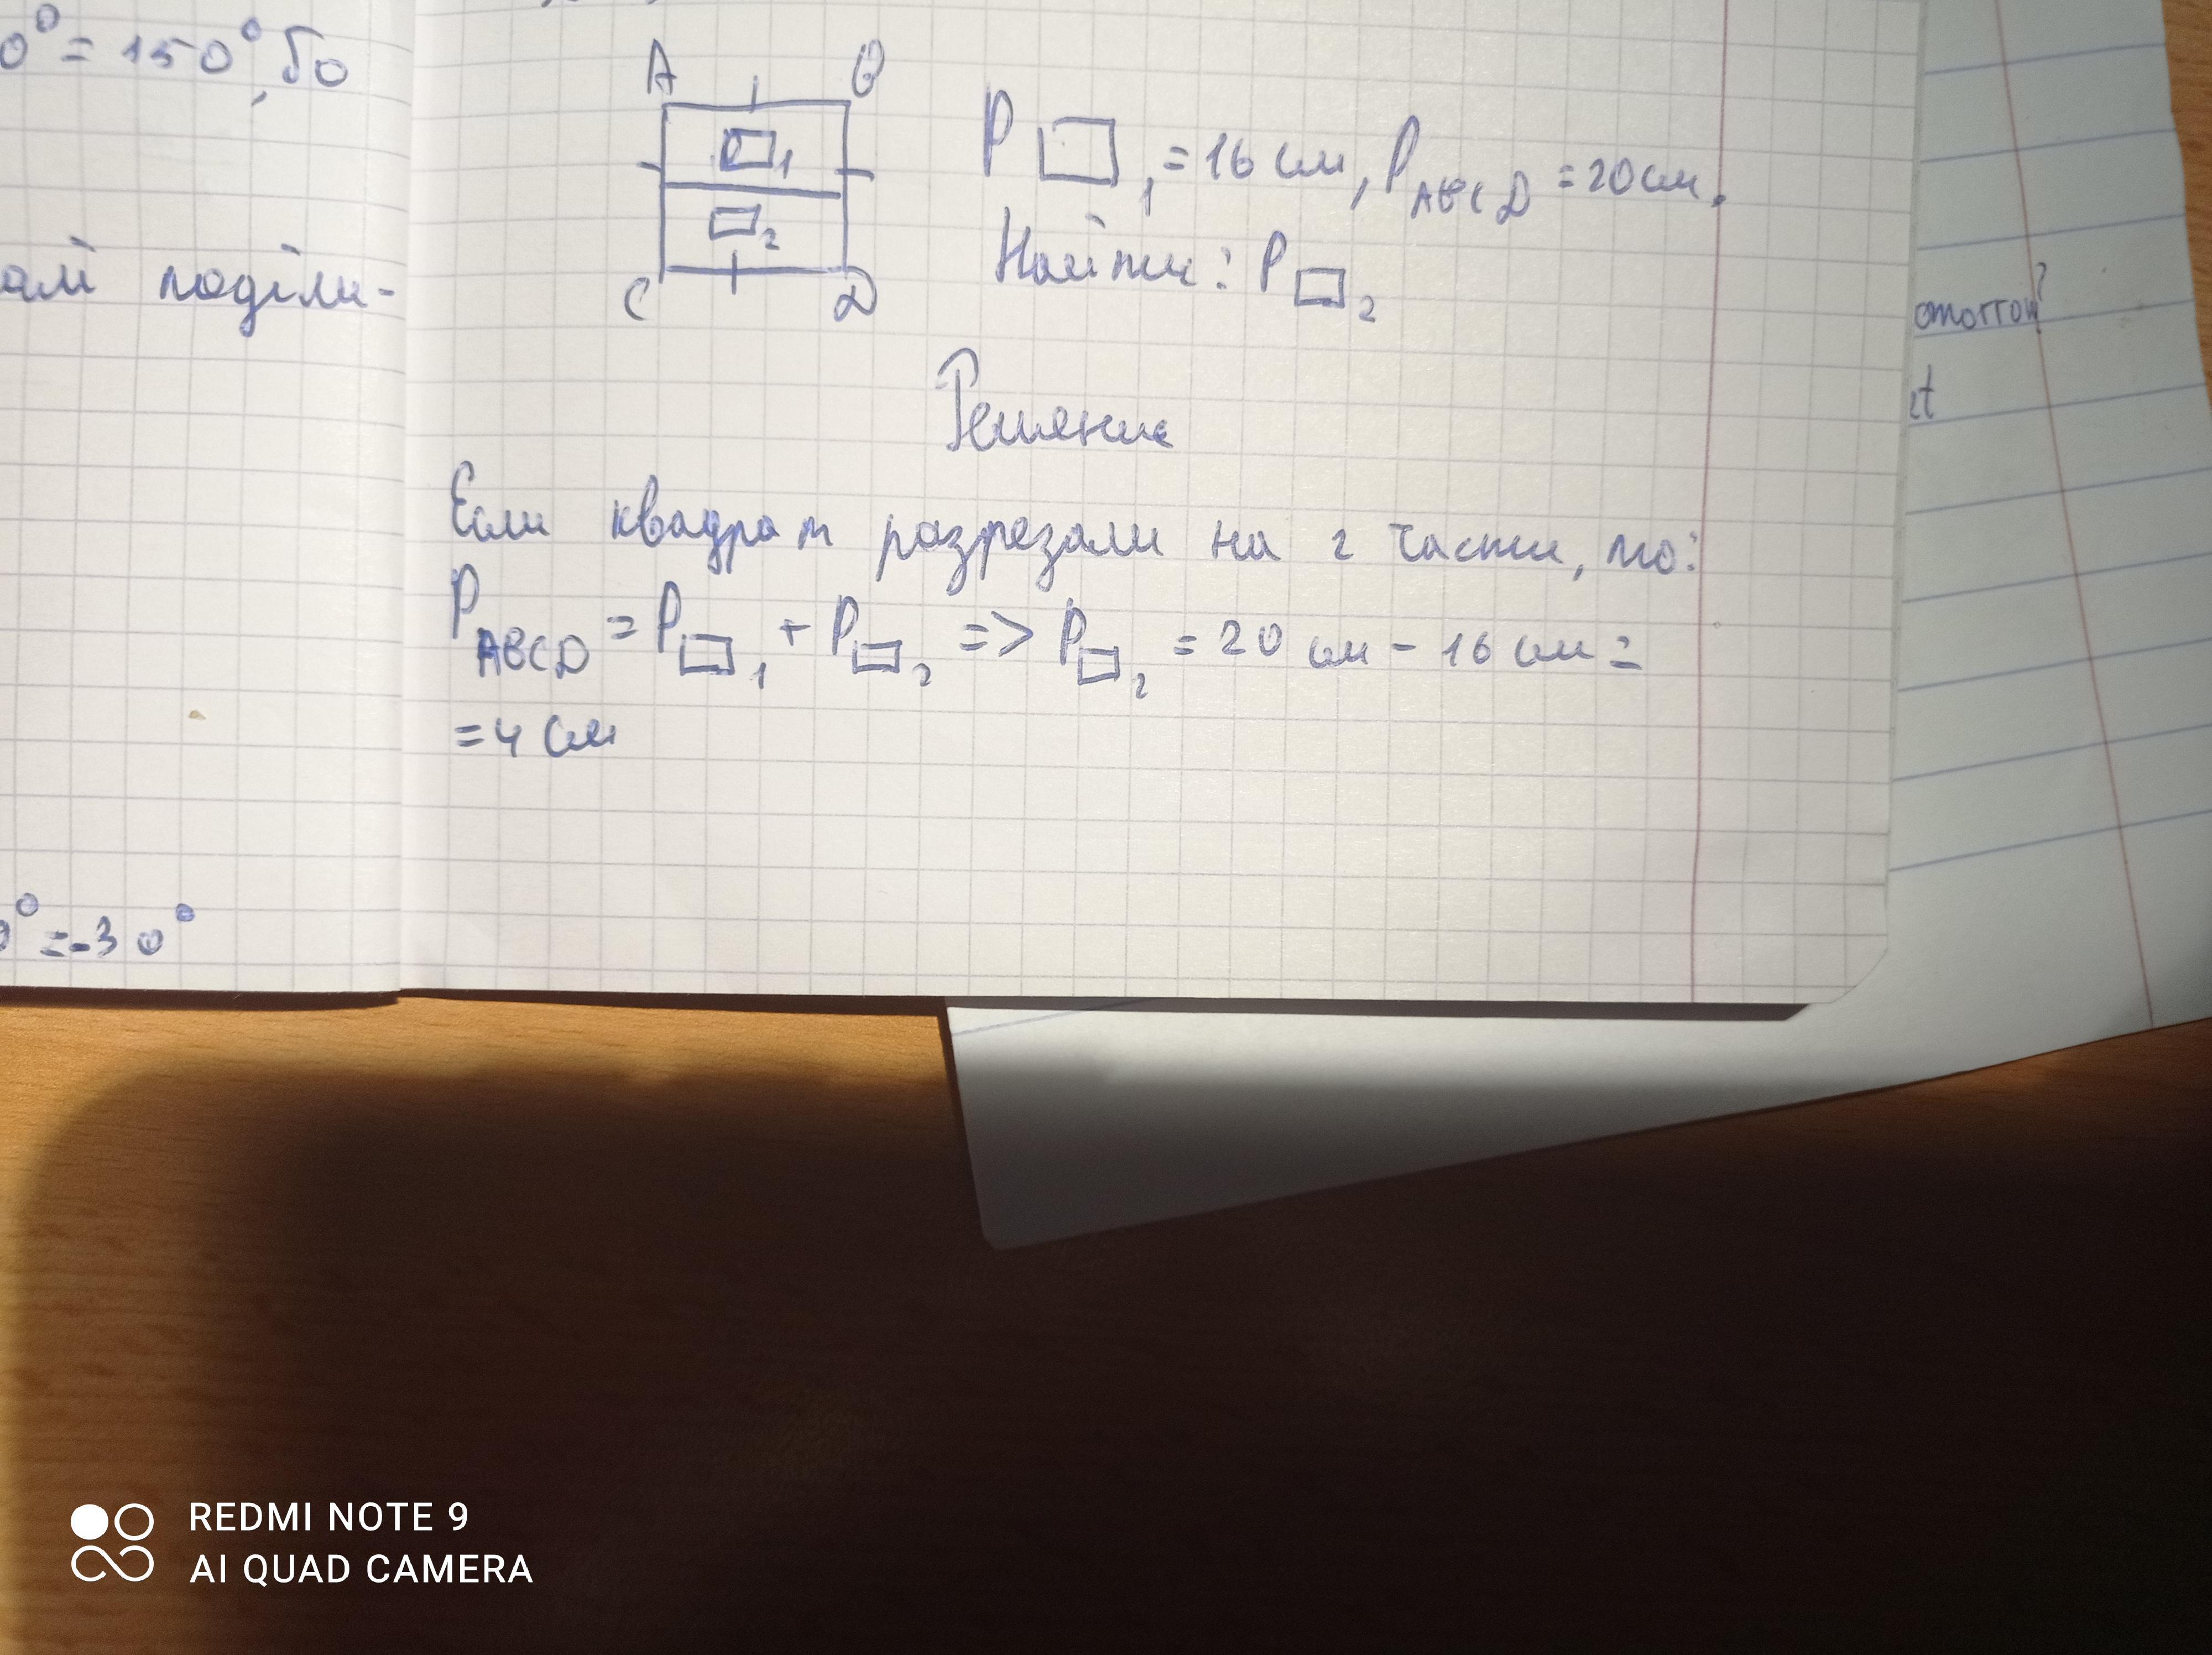 0° = 150°, бо
ам поділи-
0° = -30°
A B
1
2
C D
P □ 1 = 16 см, P ABCD = 20 см.
Найти: P □ 2
Решение
Если квадрат разрезали на 2 части, то:
P ABCD = P □ 1 + P □ 2 => P □ 2 = 20 см - 16 см =
= 4 см
omorrow?
t
REDMI NOTE 9
AI QUAD CAMERA